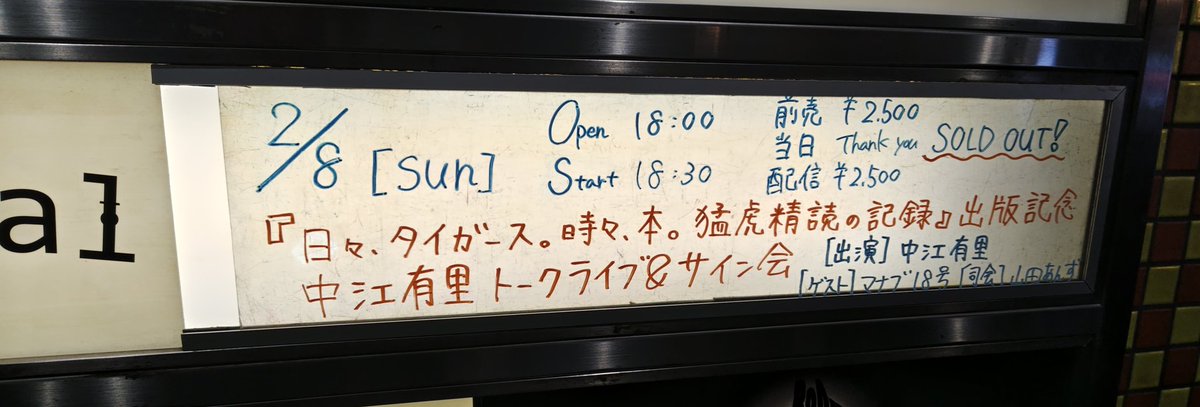 al
2/8 [sun]
Open 18:00
Start 18:30
前売 ¥2.500
当日 Thank you SOLD OUT!
配信 ¥2.500
『日々、タイガース。時々、本。猛虎精読の記録』出版記念
中江有里 トークライブ&サイン会
[出演] 中江有里
[ゲスト] マナブ18号 [司会] 山田あんず